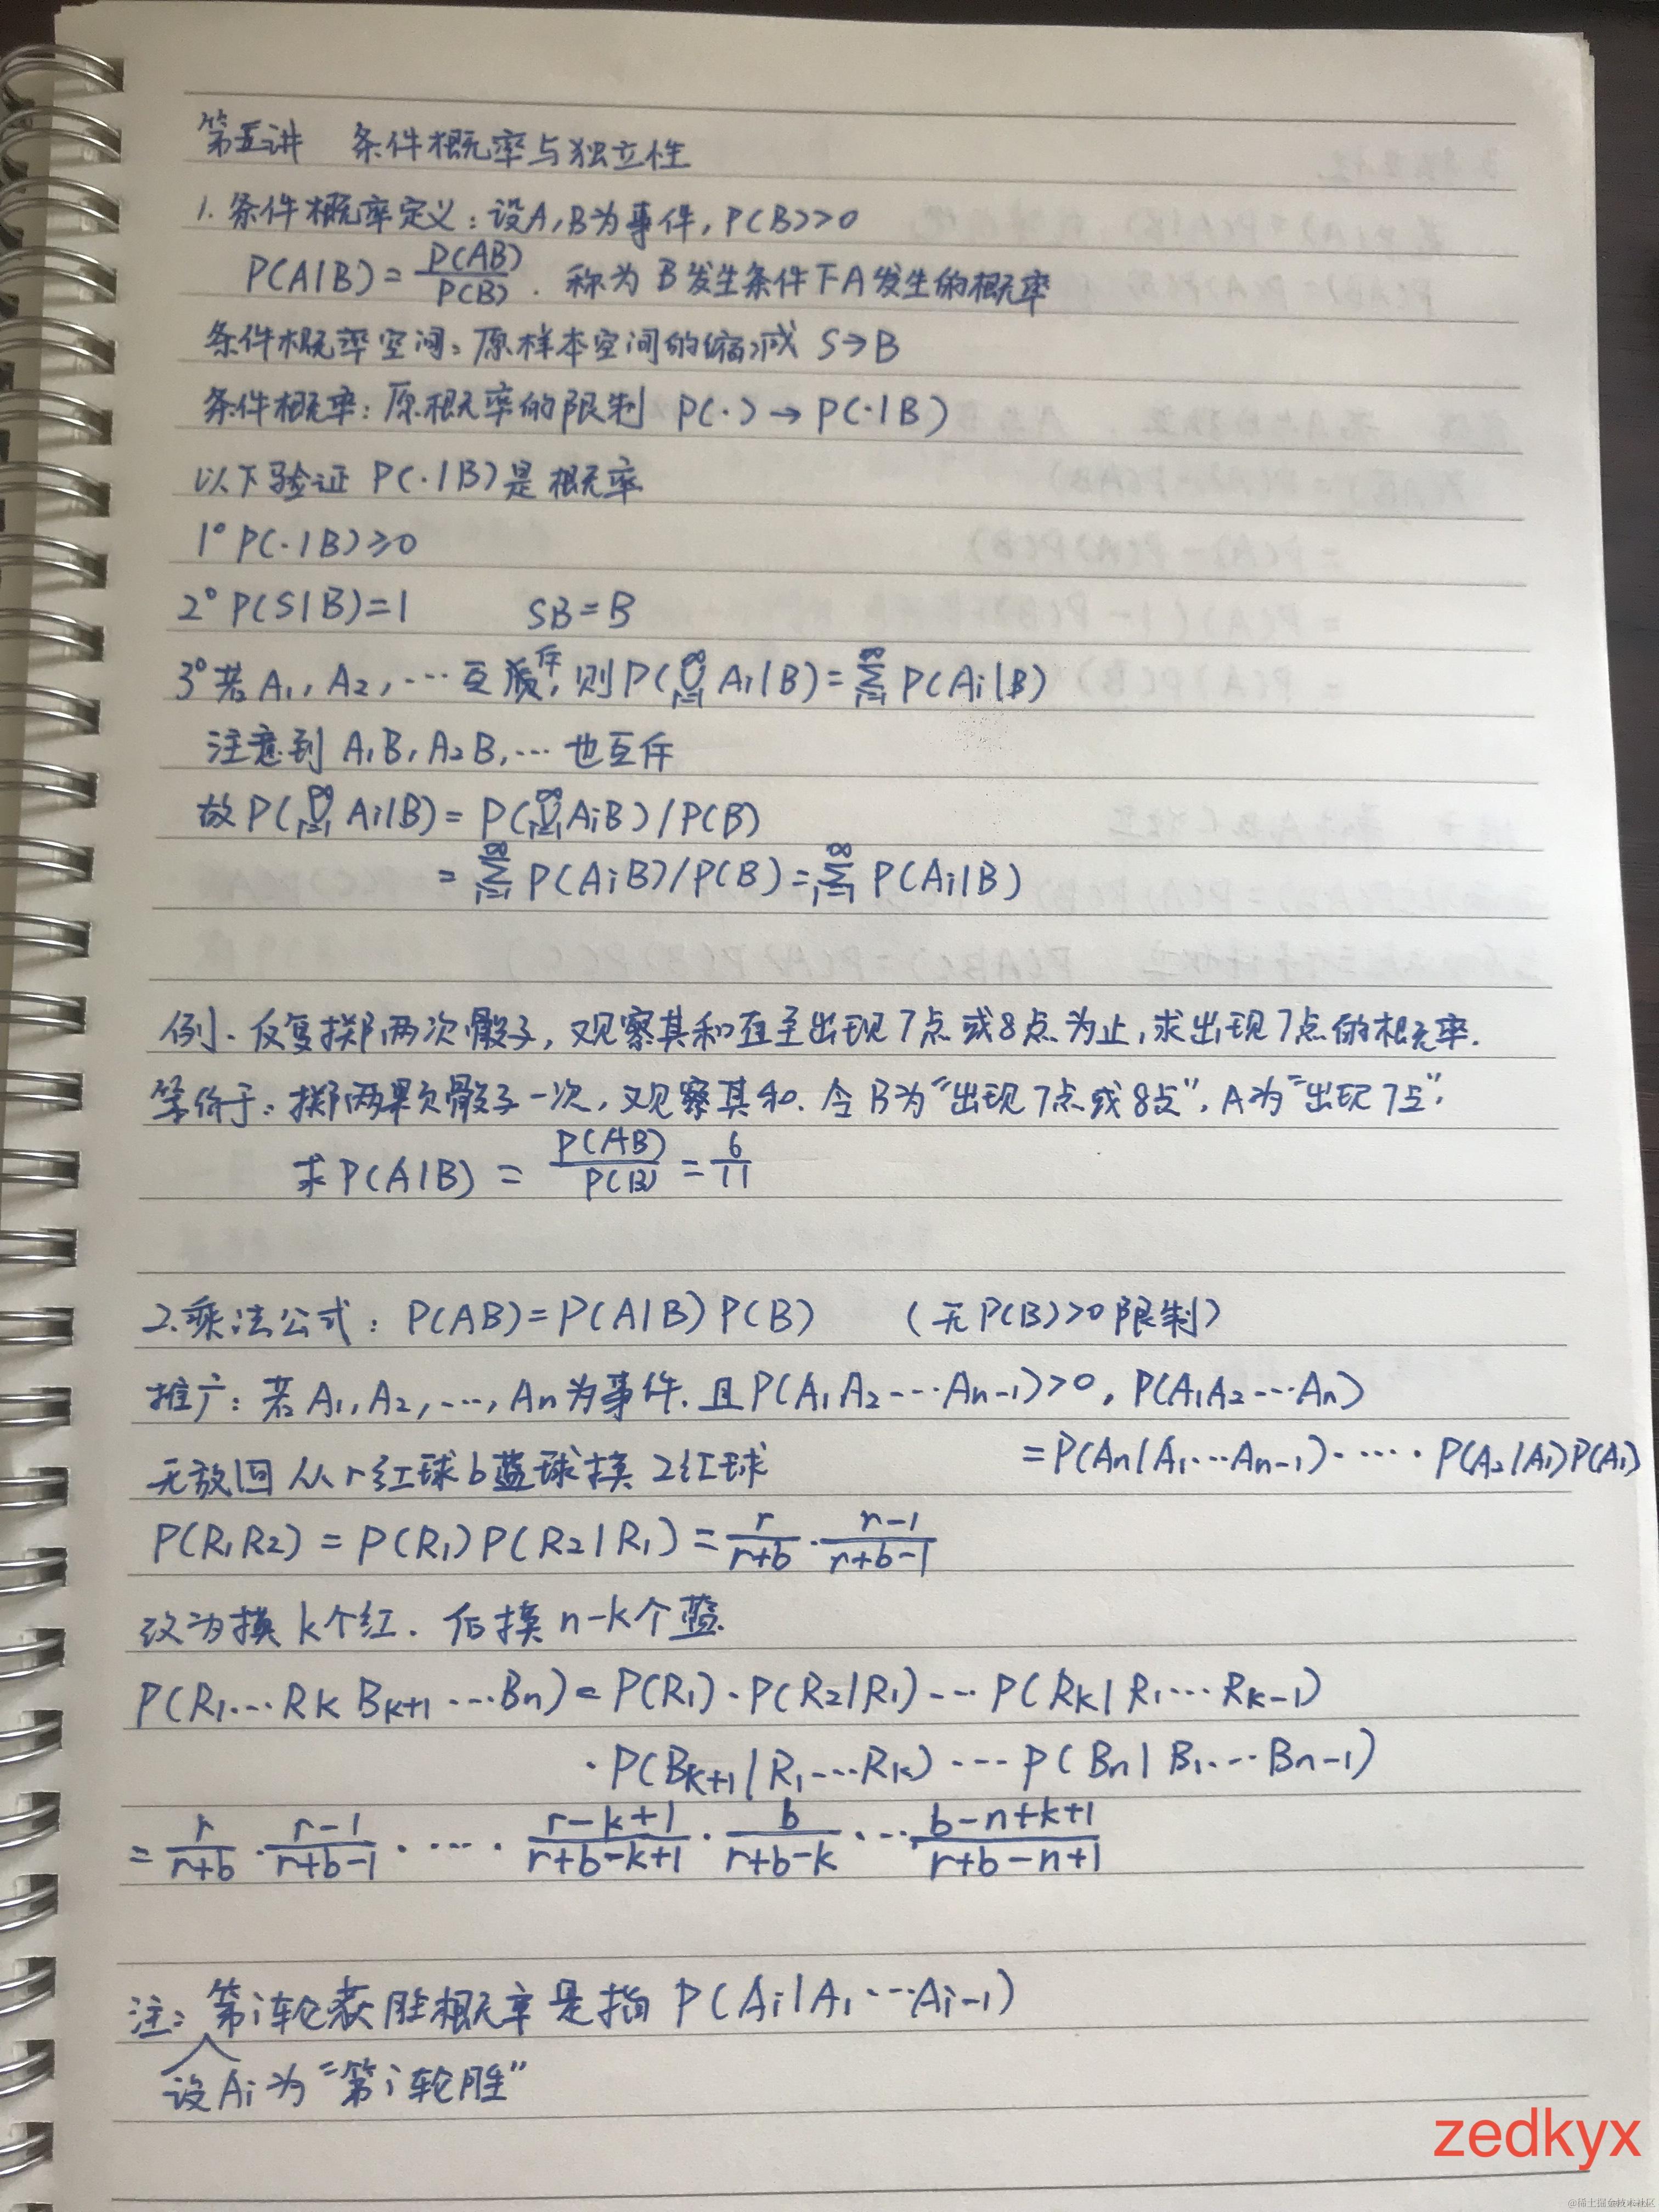 第五讲 条件概率与独立性
1. 条件概率定义：设A,B为事件，P(B)>0
P(A|B)=P(AB)/P(B). 称为B发生条件下A发生的概率
条件概率空间：原样本空间的缩减 S→B
条件概率：原概率的限制 P(·)→P(·|B)
以下验证P(·|B)是概率
1° P(·|B)≥0
2° P(S|B)=1 SB=B
3° 若A₁, A₂, ⋯互斥, 则P(⋃_{i=1}^∞ Ai|B)=∑_{i=1}^∞ P(Ai|B)
注意到 A₁B, A₂B, ⋯也互斥
故P(⋃_{i=1}^∞ Ai|B)=P(⋃_{i=1}^∞ AiB)/P(B)
=∑_{i=1}^∞ P(AiB)/P(B)=∑_{i=1}^∞ P(Ai|B)
例. 反复掷两次骰子，观察其和直至出现7点或8点为止，求出现7点的概率.
等价于：掷两颗骰子一次，观察其和. 令B为“出现7点或8点”, A为“出现7点”,
求P(A|B) = P(AB)/P(B) = 6/11
2.乘法公式：P(AB)=P(A|B)P(B) （无P(B)>0限制）
推广：若A₁, A₂, ⋯, An为事件. 且P(A₁A₂⋯An-1)>0, P(A₁A₂⋯An)
=P(An|A₁⋯An-1)·⋯·P(A₂|A₁)P(A₁)
无放回从r红球b蓝球摸2红球
P(R₁R₂)=P(R₁)P(R₂|R₁)=r/(r+b)·(r-1)/(r+b-1)
改为摸k个红. 后摸n-k个蓝.
P(R₁⋯Rk Bk+1⋯Bn)=P(R₁)·P(R₂|R₁)⋯P(Rk|R₁⋯Rk-1)
·P(Bk+1|R₁⋯Rk)⋯P(Bn|B₁⋯Bn-1)
=r/(r+b)·(r-1)/(r+b-1)·⋯·(r-k+1)/(r+b-k+1)·b/(r+b-k)·⋯(b-n+k+1)/(r+b-n+1)
注：第i轮获胜概率是指P(Ai|A₁⋯Ai-1)
设Ai为“第i轮胜”
zedkyx
@稀土掘金技术社区